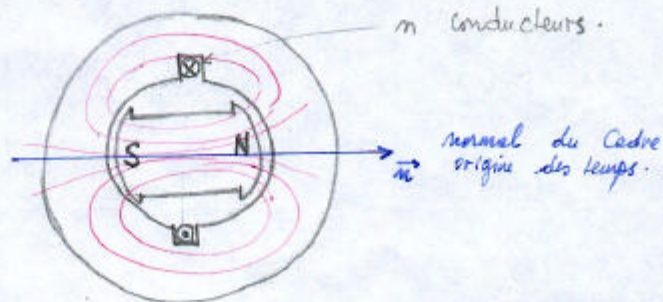 n conducteurs.
S N
normal du Cadre
n⃗ origine des temps.